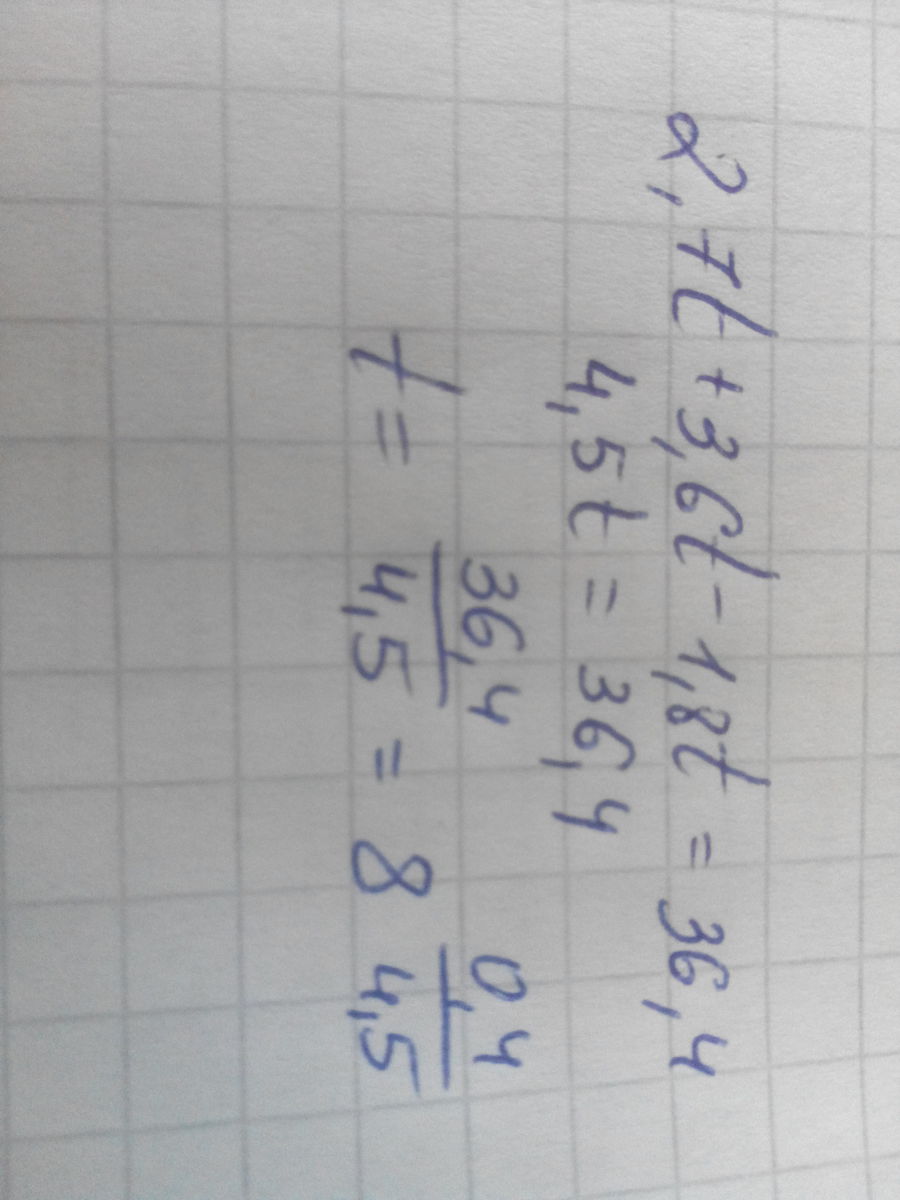 2,7t + 3,6t - 1,8t = 36,4
4,5t = 36,4
t = 36,4/4,5 = 8 0,4/4,5